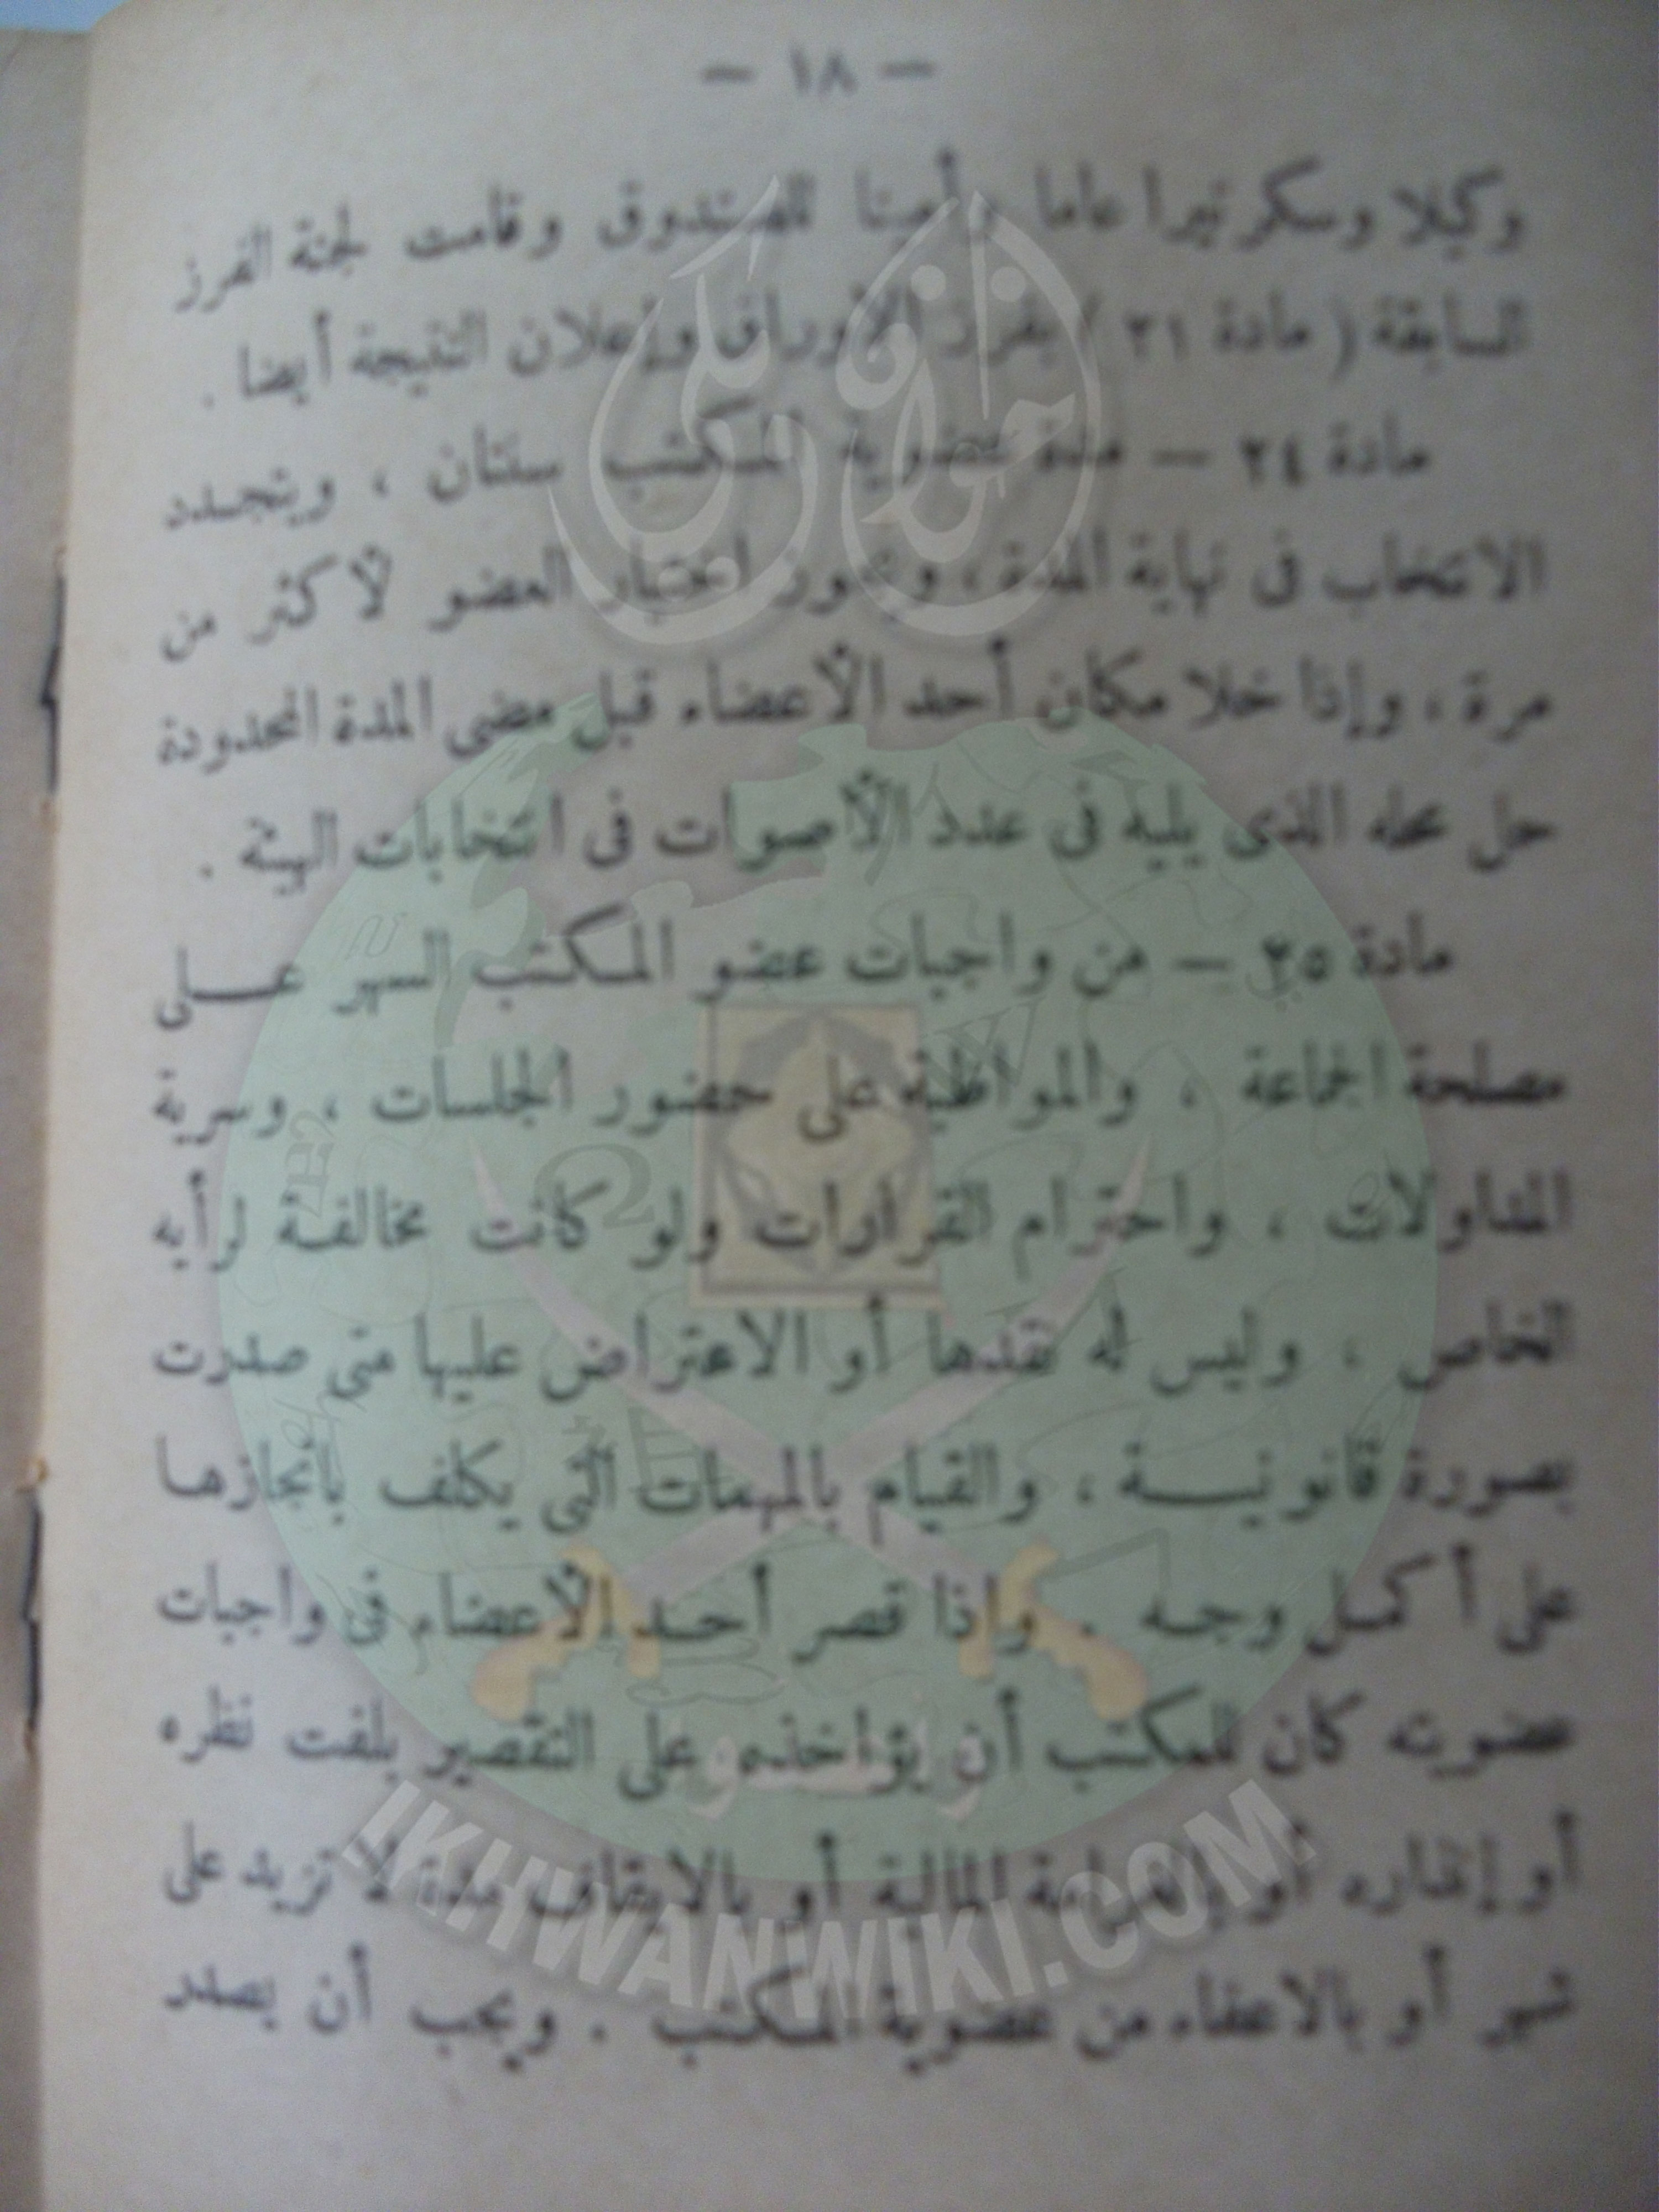 — ١٨ —
وكيلا وسكرتيرا عاما وأمينا للصندوق وقامت لجنة الفرز
السابقة ( مادة ٢١ ) بفرز الأوراق وإعلان النتيجة أيضا .
مادة ٢٤ — مدة عضوية المكتب سنتان ، ويتجدد
الانتخاب فى نهاية المدة ، ويجوز اختيار العضو لأكثر من
مرة ، وإذا خلا مكان أحد الأعضاء قبل مضى المدة المحدودة
حل محله الذى يليه فى عدد الأصوات فى انتخابات الهيئة .
مادة ٢٥ — من واجبات عضو المكتب السهر على
مصلحة الجماعة ، والمواظبة على حضور الجلسات ، وسرية
المداولات ، واحترام القرارات ولو كانت مخالفة لرأيه
الخاص ، وليس له نقدها أو الاعتراض عليها متى صدرت
بصورة قانونية ، والقيام بالمهمات التى يكلف بانجازها
على أكمل وجه . وإذا قصر أحد الأعضاء فى واجبات
عضويته كان للمكتب أن يؤاخذه على التقصير بلفت نظره
أو إنذاره أو بالغرامة المالية أو بالايقاف مدة لا تزيد على
شهر أو بالاعفاء من عضوية المكتب . ويجب أن يصدر
إخوان ويكي
وأعدوا
IKHWANWIKI.COM